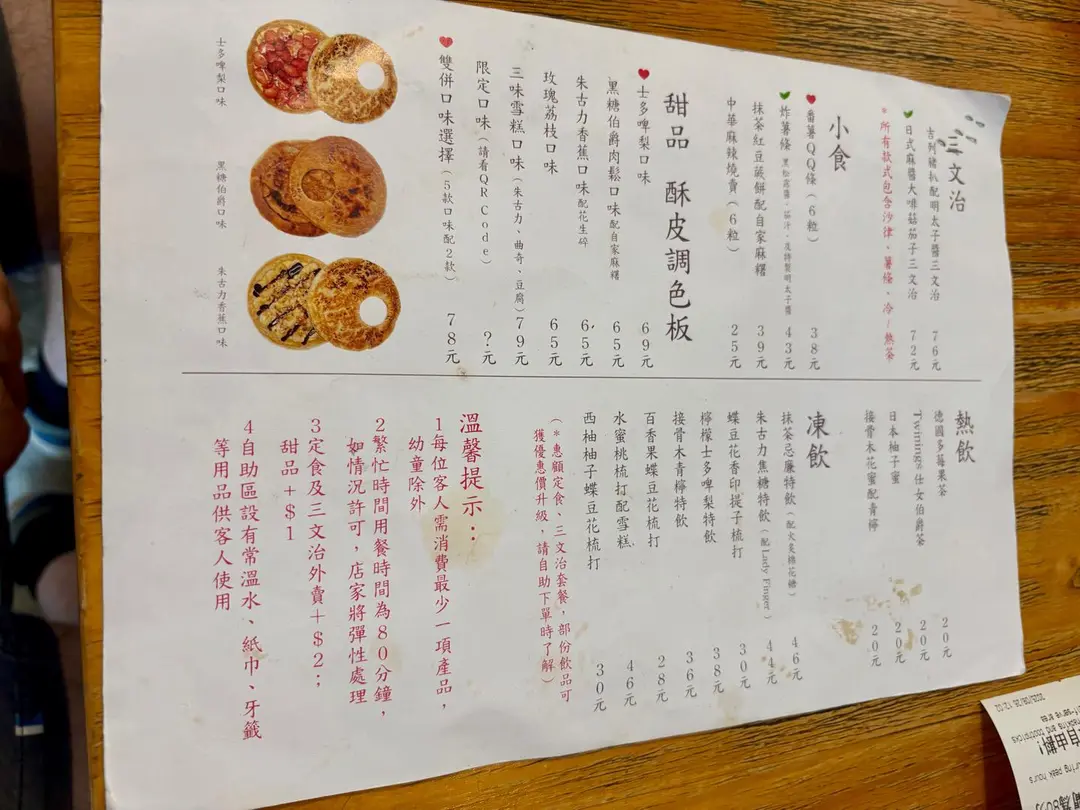 三文治
吉列豬扒配明太子醬三文治 76元
日式麻醬大啡菇茄子三文治 72元
*所有款式包含沙律、薯條、冷/熱茶
小食
番薯QQ條(6粒) 38元
炸薯條 黑松露醬、茄汁、特製明太子醬 43元
抹茶紅豆蕨餅配自家麻糬 39元
中華麻辣燒賣(6粒) 25元
甜品 酥皮調色板
士多啤梨口味 69元
黑糖伯爵肉鬆口味配自家麻糬 65元
朱古力香蕉口味配花生碎 65元
玫瑰荔枝口味 65元
三味雪糕口味(朱古力、曲奇、豆腐) 79元
限定口味(請看QR Code) ?元
雙併口味選擇(5款口味配2款) 78元
士多啤梨口味
黑糖伯爵口味
朱古力香蕉口味
熱飲
德國多莓果茶 20元
Twinings仕女伯爵茶 20元
日本柚子蜜 20元
接骨木花蜜配青檸 20元
凍飲
抹茶忌廉特飲(配火炙棉花糖) 46元
朱古力焦糖特飲(配Lady Finger) 44元
蝶豆花香印提子梳打 30元
檸檬士多啤梨特飲 38元
接骨木青檸特飲 36元
百香果蝶豆花梳打 28元
水蜜桃梳打配雪糕 46元
西柚柚子蝶豆花梳打 30元
(*惠顧定食、三文治套餐,部份飲品可
獲優惠價升級,請自助下單時了解)
溫馨提示:
1每位客人需消費最少一項產品,
幼童除外
2繁忙時間用餐時間為80分鐘,
如情況許可,店家將彈性處理
3定食及三文治外賣+$2;
甜品+$1
4自助區設有常溫水、紙巾、牙籤
等用品供客人使用
自由齡!